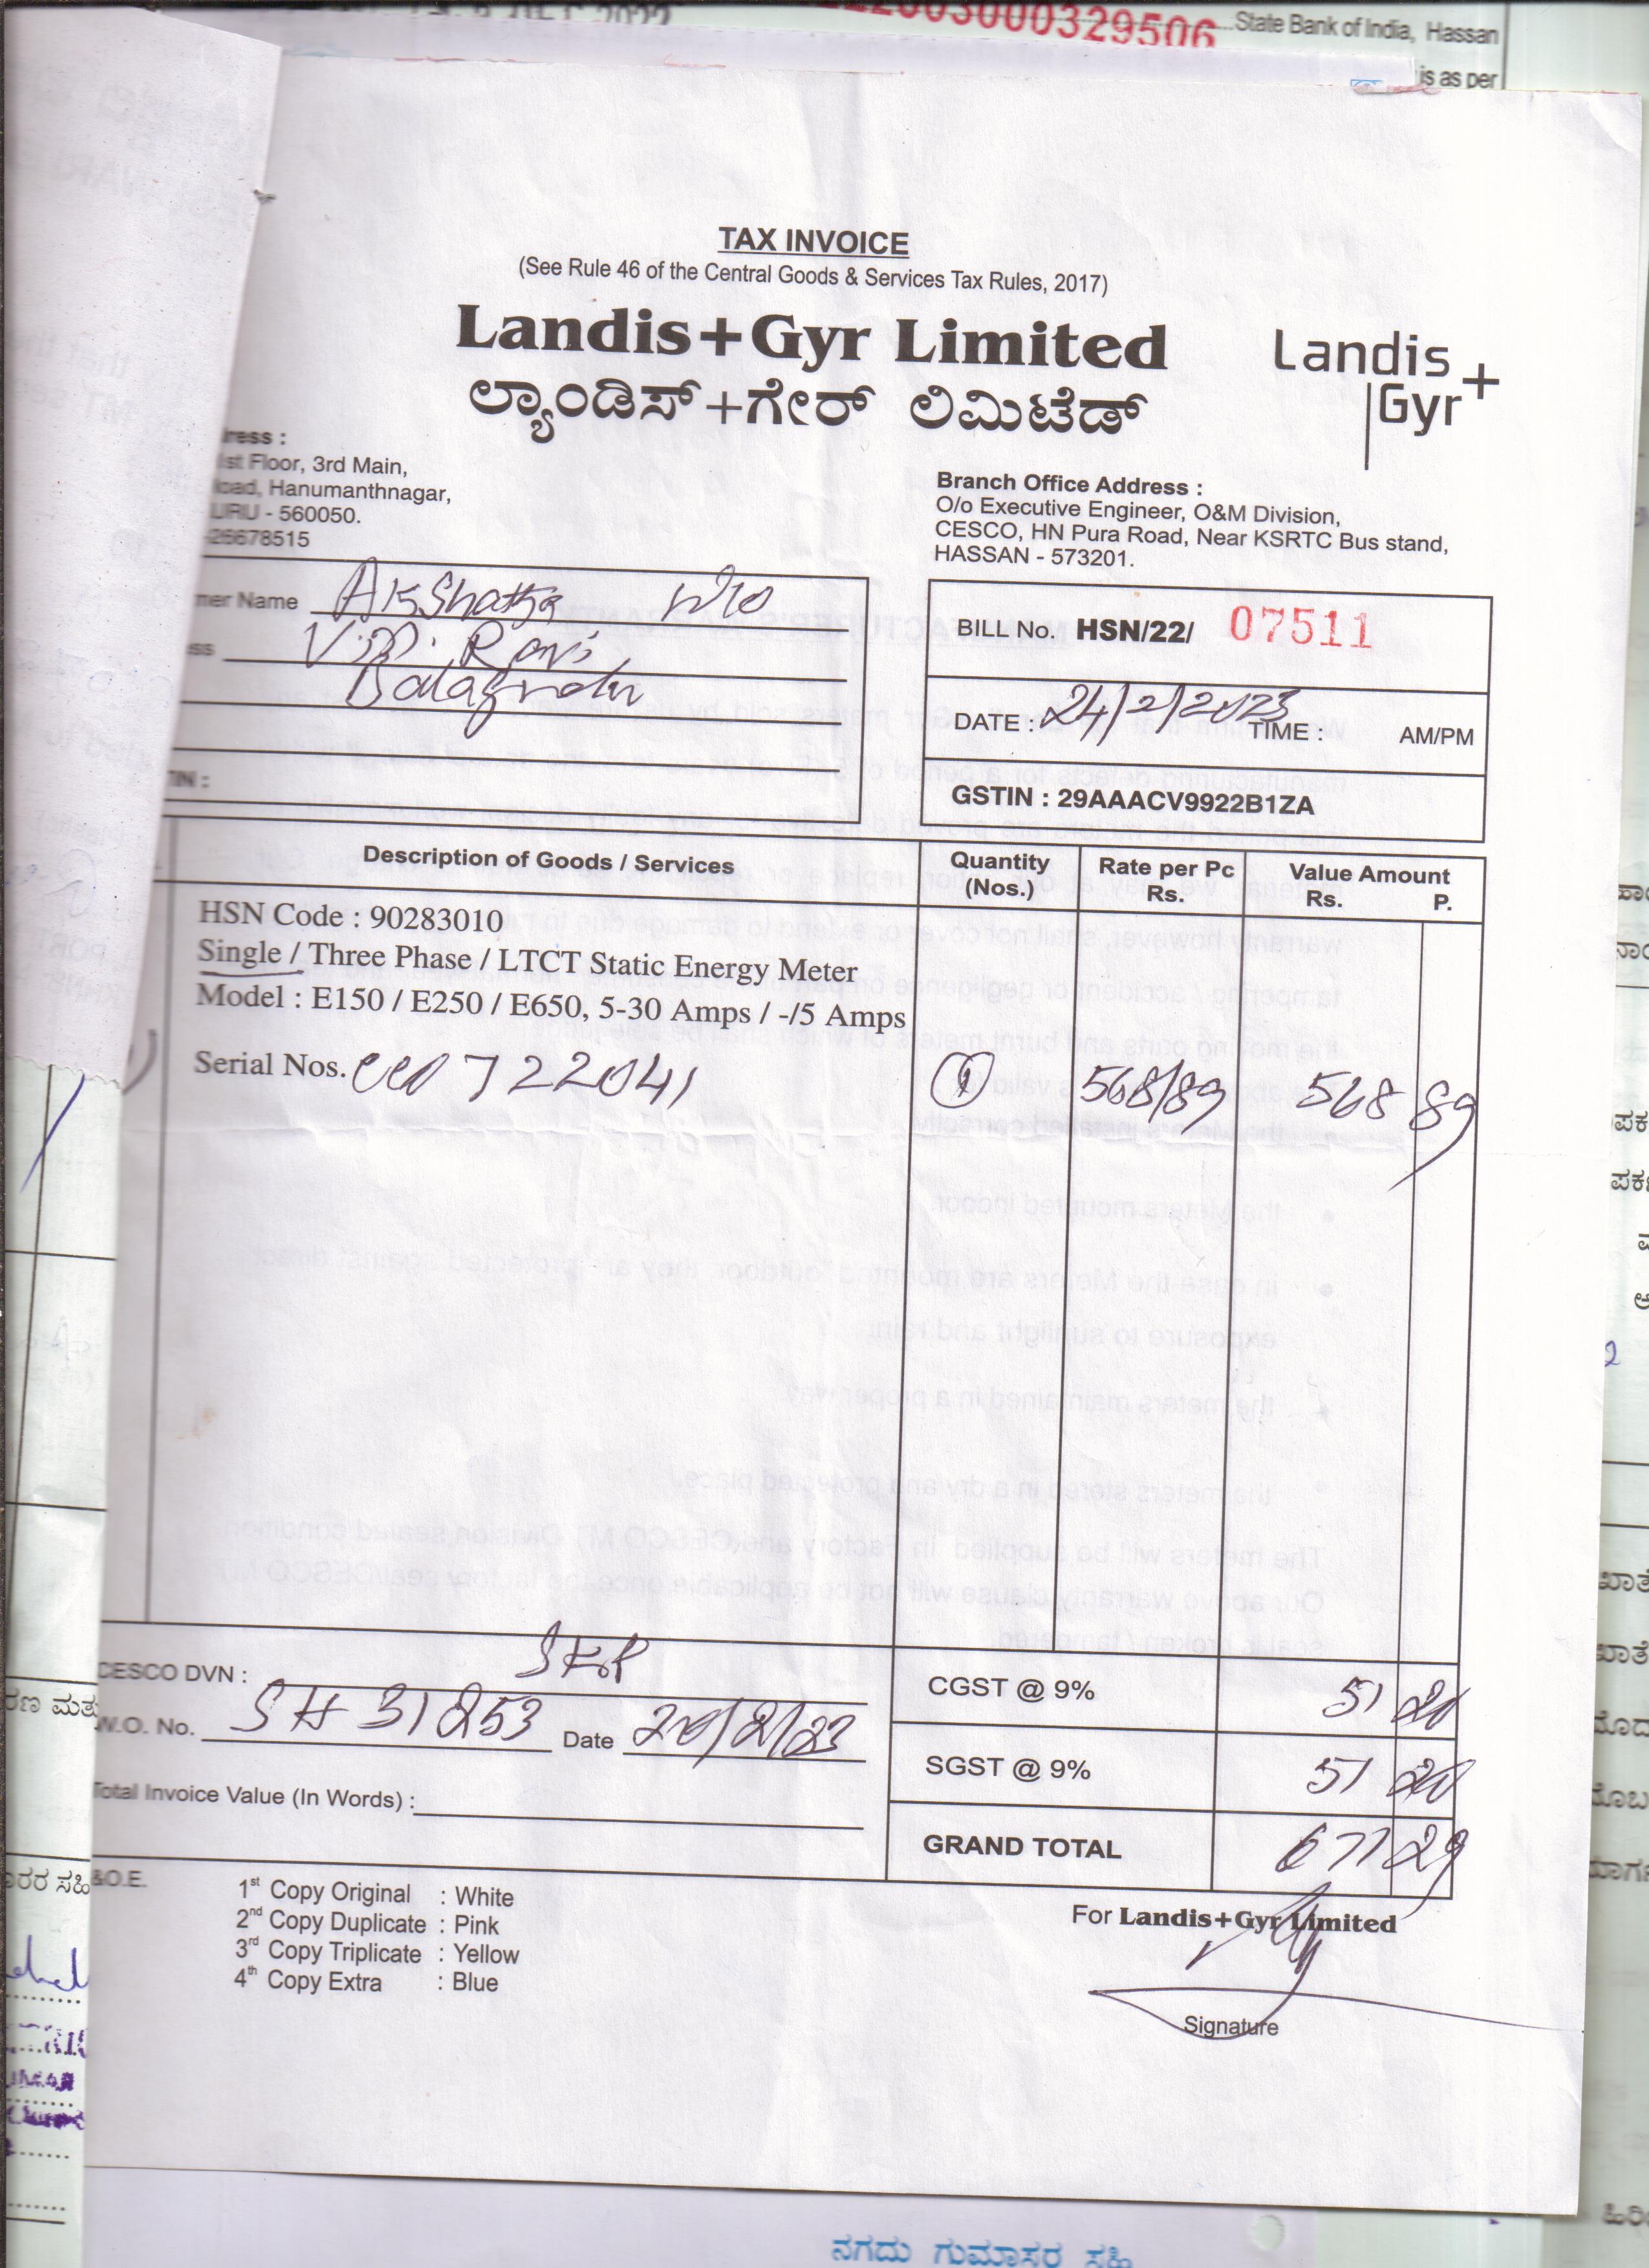 329506 State Bank of India, Hassan
is as per
TAX INVOICE
(See Rule 46 of the Central Goods & Services Tax Rules, 2017)
Landis+Gyr Limited
ಲ್ಯಾಂಡಿಸ್+ಗೇರ್ ಲಿಮಿಟೆಡ್
Landis+
Gyr
ress :
1st Floor, 3rd Main,
oad, Hanumanthnagar,
URU - 560050.
-26678515
Branch Office Address :
O/o Executive Engineer, O&M Division,
CESCO, HN Pura Road, Near KSRTC Bus stand,
HASSAN - 573201.
mer Name Akshatha w/o
ess V.M. Ravi
TIN :
BILL No. HSN/22/ 07511
DATE : 24/2/2023 TIME : AM/PM
GSTIN : 29AAACV9922B1ZA
Description of Goods / Services Quantity (Nos.) Rate per Pc Rs. Value Amount Rs. P.
HSN Code : 90283010
Single / Three Phase / LTCT Static Energy Meter
Model : E150 / E250 / E650, 5-30 Amps / -/5 Amps
Serial Nos. 722041 1 568/89 568 89
CESCO DVN :
W.O. No. SH 31253 Date 20/2/23
Total Invoice Value (In Words) :
CGST @ 9% 51 20
SGST @ 9% 51 20
GRAND TOTAL 671 29
&O.E.
1st Copy Original : White
2nd Copy Duplicate : Pink
3rd Copy Triplicate : Yellow
4th Copy Extra : Blue
For Landis+Gyr Limited
Signature
ನಗದು ಗುಮಾಸರ ಸಹಿ